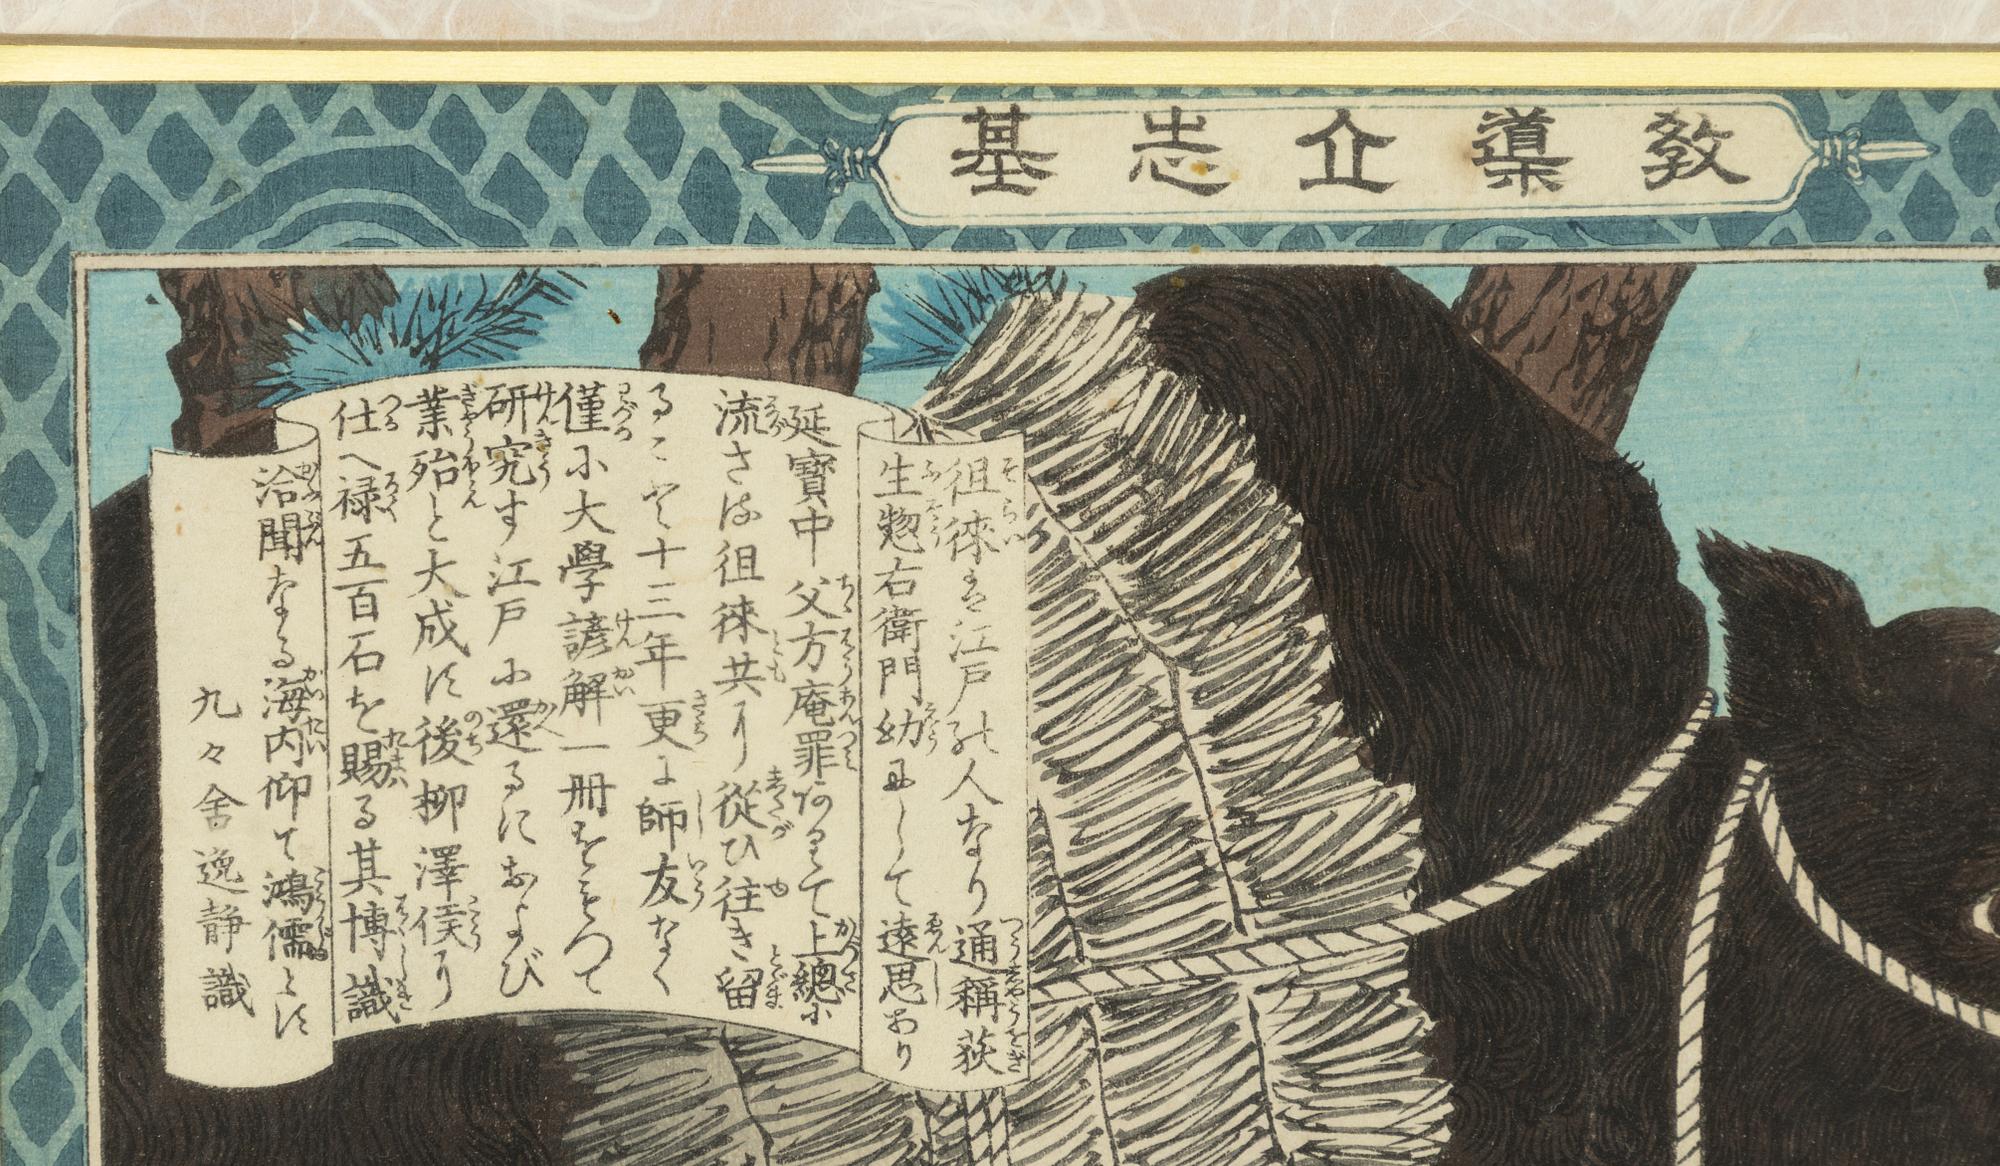 教導立志基
徂徠は江戸の人なり通稱荻
生惣右衛門幼にして遠思あり
延寶中父方庵罪ありて上總に
流さる徂徠共に從ひ往き留
ること十三年更に師友なく
僅に大學諺解一冊をもつて
研究す江戸に還るにおよび
業殆と大成す後柳澤侯に
仕へ禄五百石を賜る其博識
洽聞なる海内仰て鴻儒とす
九々舍逸静識